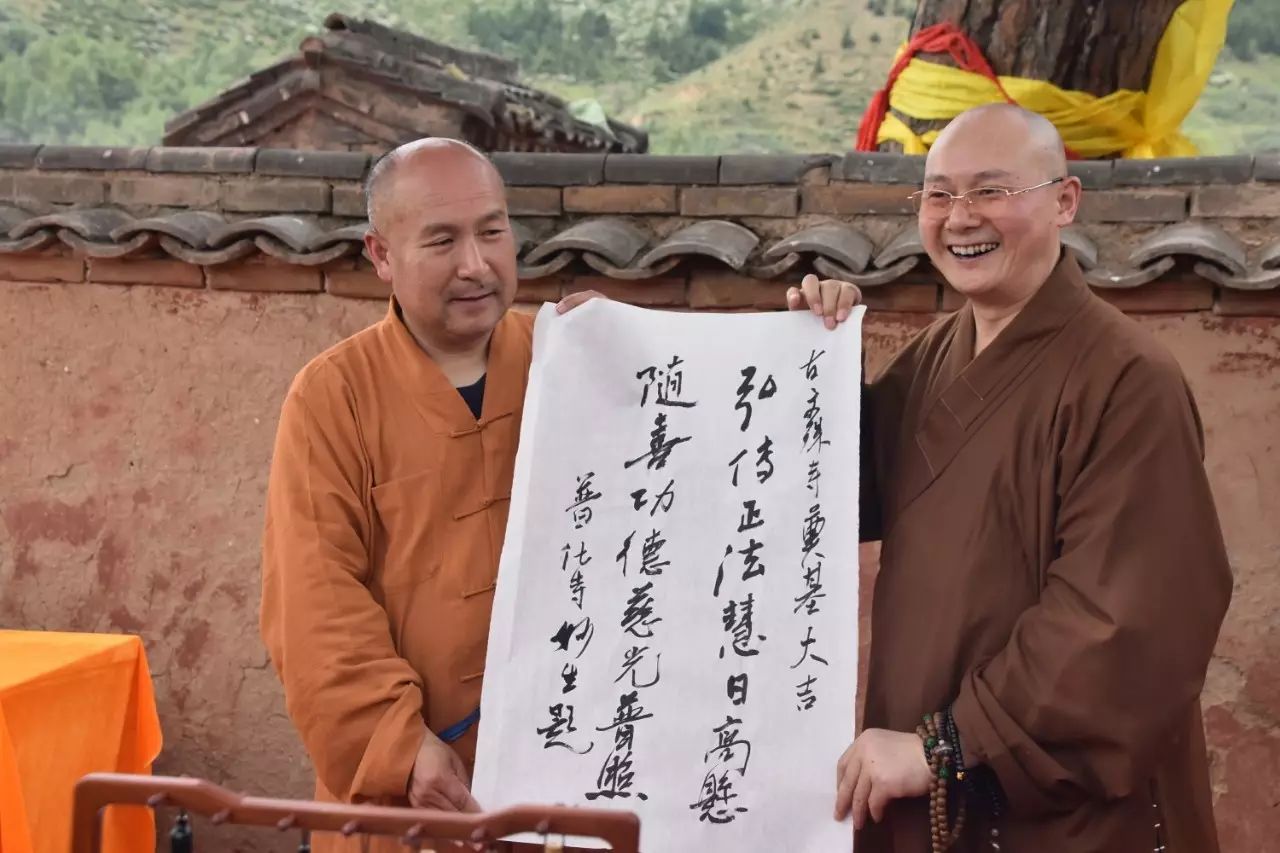 古文殊寺奠基大吉
弘传正法慧日高懸
随喜功德慈光普照
普化寺妙生题